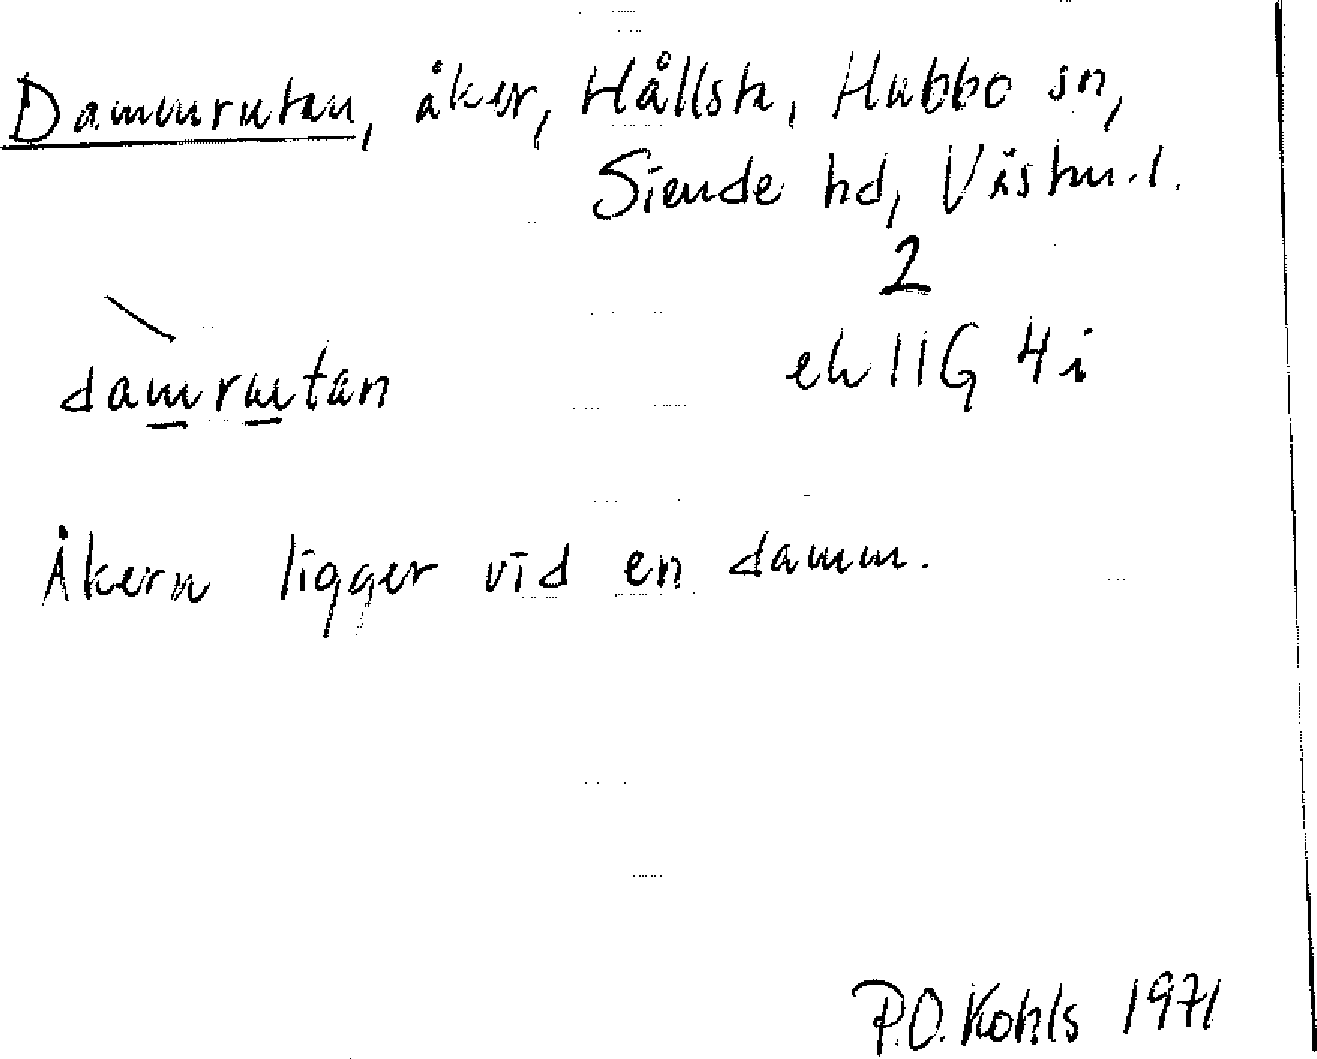 Dammrutan, åker, Hållsta, Hubbo sn,
Siende hd, Västm.l.
2
ek 11G 4i
damrutan
Åkern ligger vid en damm.
P.O. Kohls 1971